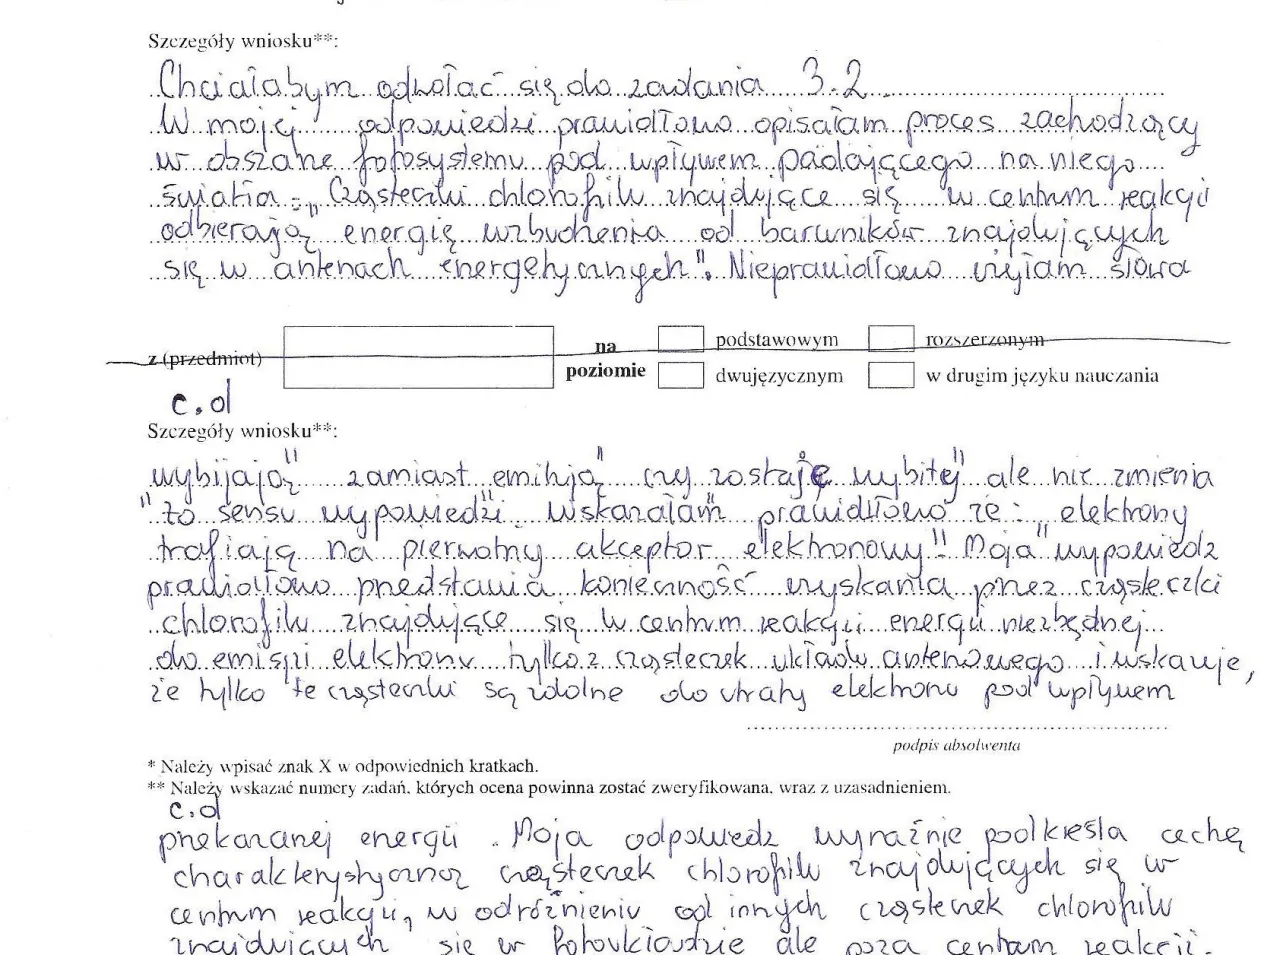 Szczegóły wniosku**:
Chciałabym odwołać się do zadania 3.2.
W mojej odpowiedzi prawidłowo opisałam proces zachodzący
w obszarze fotosystemu pod wpływem padającego na niego
światła: „Cząsteczki chlorofilu znajdujące się w centrum reakcji
odbierają energię wzbudzenia od barwników znajdujących
się w antenach energetycznych". Nieprawidłowo użyłam słowa
z (przedmiot)
na poziomie
podstawowym
rozszerzonym
dwujęzycznym
w drugim języku nauczania
c.d
Szczegóły wniosku**:
"wybijają" zamiast "emitują" czy "zostaję wybitej" ale nie zmienia
to sensu wypowiedzi. Wskazałam prawidłowo że: "elektrony
trafiają na pierwotny akceptor elektronowy". Moja wypowiedź
prawidłowo przedstawia konieczność uzyskania przez cząsteczki
chlorofilu znajdujące się w centrum reakcji energii niezbędnej
do emisji elektronu tylko z cząsteczek układu antenowego i wskazuje,
że tylko te cząsteczki są zdolne do utraty elektronu pod wpływem
podpis absolwenta
* Należy wpisać znak X w odpowiednich kratkach.
** Należy wskazać numery zadań, których ocena powinna zostać zweryfikowana, wraz z uzasadnieniem.
c.d
przekazanej energii. Moja odpowiedź wyraźnie podkreśla cechę
charakterystyczną cząsteczek chlorofilu znajdujących się w
centrum reakcji, w odróżnieniu od innych cząsteczek chlorofilu
znajdujących się w fotoukładzie ale poza centrum reakcji.